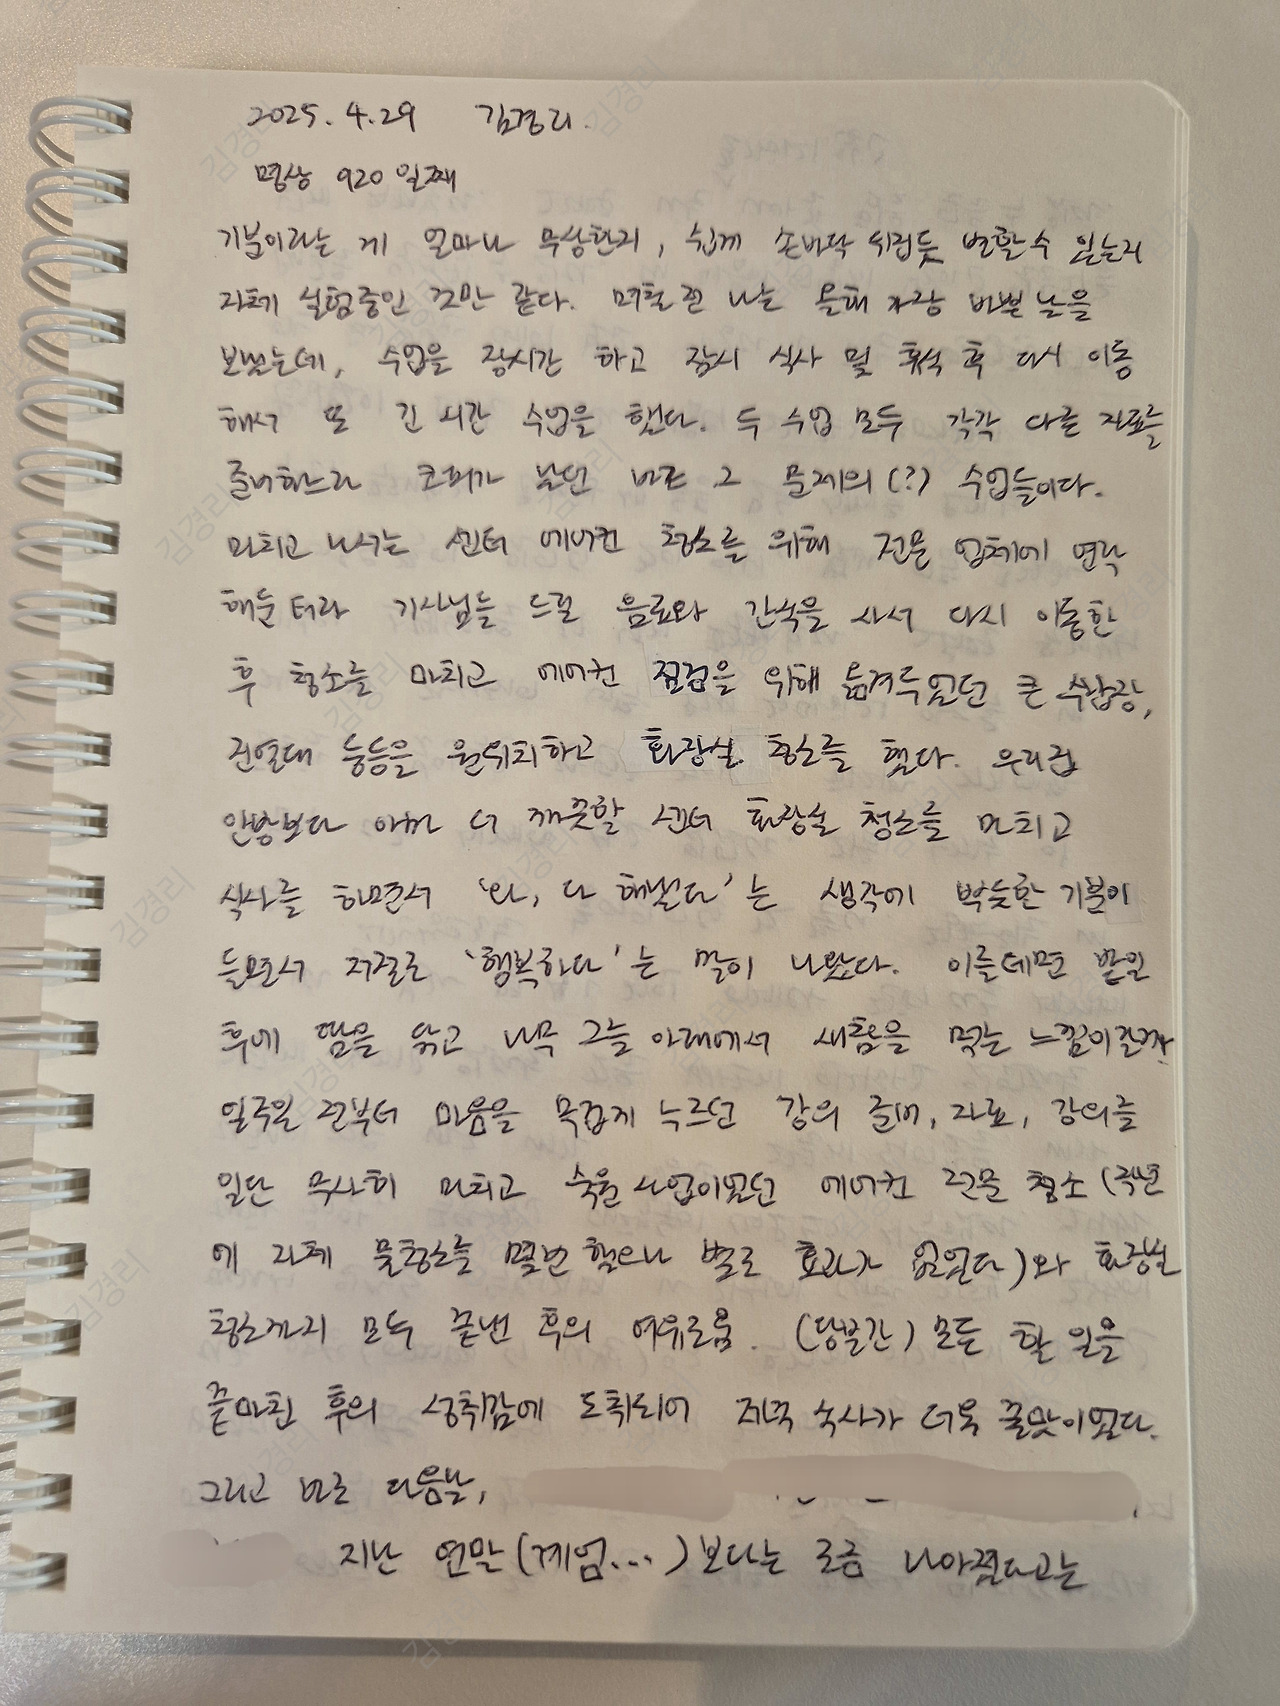 2025. 4. 29 김경리.
명상 920 일째
기분이라는 게 얼마나 무상한지, 쉽게 손바닥 뒤집듯 변할 수 있는지
자체 실험중인 것만 같다. 며칠 전 나는 올해 가장 바쁜 날을
보냈는데, 수업을 장시간 하고 잠시 식사 및 휴식 후 다시 이동
해서 또 긴 시간 수업을 했다. 두 수업 모두 각각 다른 자료를
준비하느라 코피가 났던 바로 그 문제의(?) 수업들이다.
마치고 나서는 센터 에어컨 청소를 위해 전문 업체에 연락
해둔 터라 기사님들 드릴 음료와 간식을 사서 다시 이동한
후 청소를 마치고 에어컨 점검을 위해 옮겨두었던 큰 수납장,
진열대 등등을 원위치하고 화장실 청소를 했다. 우리집
안방보다 아마 더 깨끗할 센터 화장실 청소를 마치고
식사를 하면서 '와, 다 해냈다'는 생각에 뿌듯한 기분이
들면서 저절로 '행복하다'는 말이 나왔다. 이를테면 밭일
후에 땀을 닦고 나무 그늘 아래에서 새참을 먹는 느낌이랄까
일주일 전부터 마음을 무겁게 누르던 강의 준비, 자료, 강의를
일단 무사히 마치고 숙원사업이었던 에어컨 전문 청소 (작년
에 자체 물청소를 몇번 했으나 별로 효과가 없었다)와 화장실
청소까지 모두 끝낸 후의 여유로움. (당분간) 모든 할 일을
끝마친 후의 성취감에 도취되어 저녁 식사가 더욱 꿀맛이었다.
그리고 바로 다음날,
지난 연말(계엄...)보다는 조금 나아졌다고는